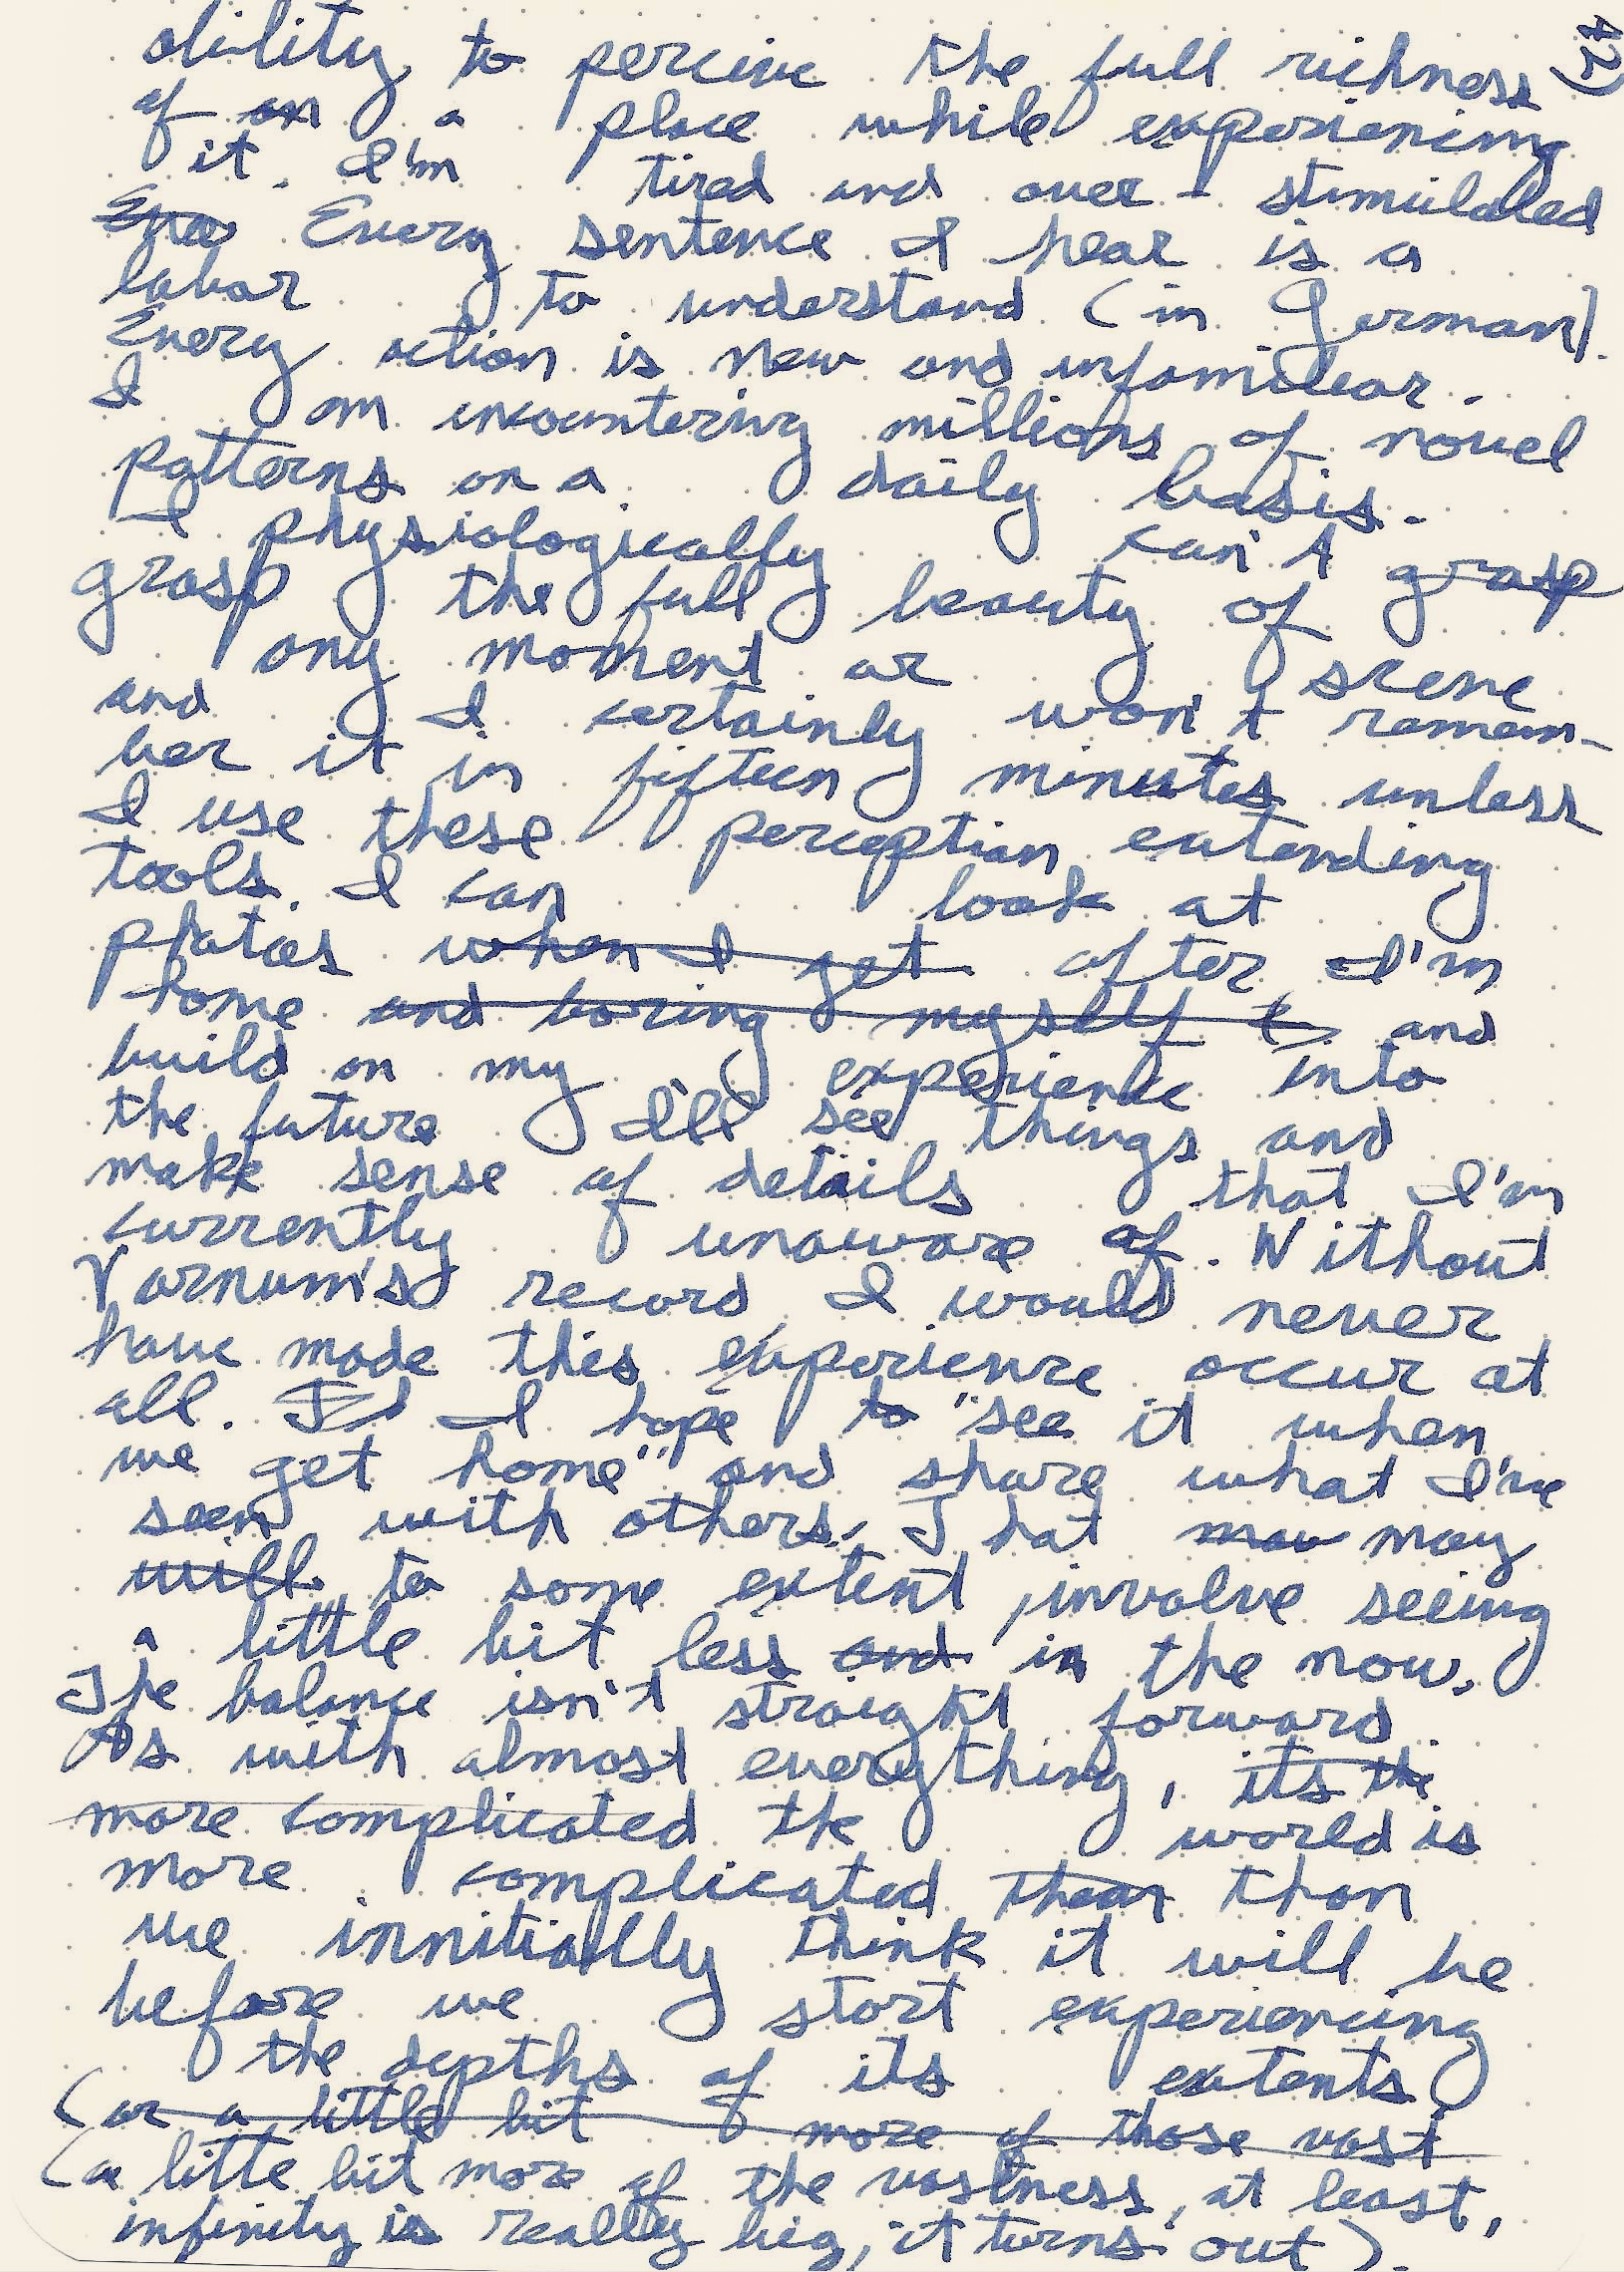 42)
ability to percieve the full richness
of an a place while experiencing
it. I'm tired and over-stimulated
Eve Every sentence I hear is a
labor to understand (in German).
Every action is new and unfamiliar.
I am encountering millions of novel
patterns on a daily basis.
I physiologically can't grasp
grasp the full beauty of
any moment or scene
and I certainly won't remem-
ber it in fifteen minutes unless
I use these perception extending
tools. I can look at
photos when I get after I'm
home and boring myself t and
build on my experience into
the future I'll see things and
make sense of details that I'm
currently unaware of. Without
Varnum's record I would never
have made this experience occur at
all. I hope to "see it when
we get home" and share what I've
seen with others. That may may
will, to some extent, involve seeing
a little bit less and in the now.
The balance isn't straight forward.
As with almost everything, its the
more complicated the world is
more complicated than than
we innitially think it will be
before we start experiencing
the depths of its extents
(or a little bit more of those vast
(a litte bit more of the vastness, at least,
infinity is really big, it turns out).